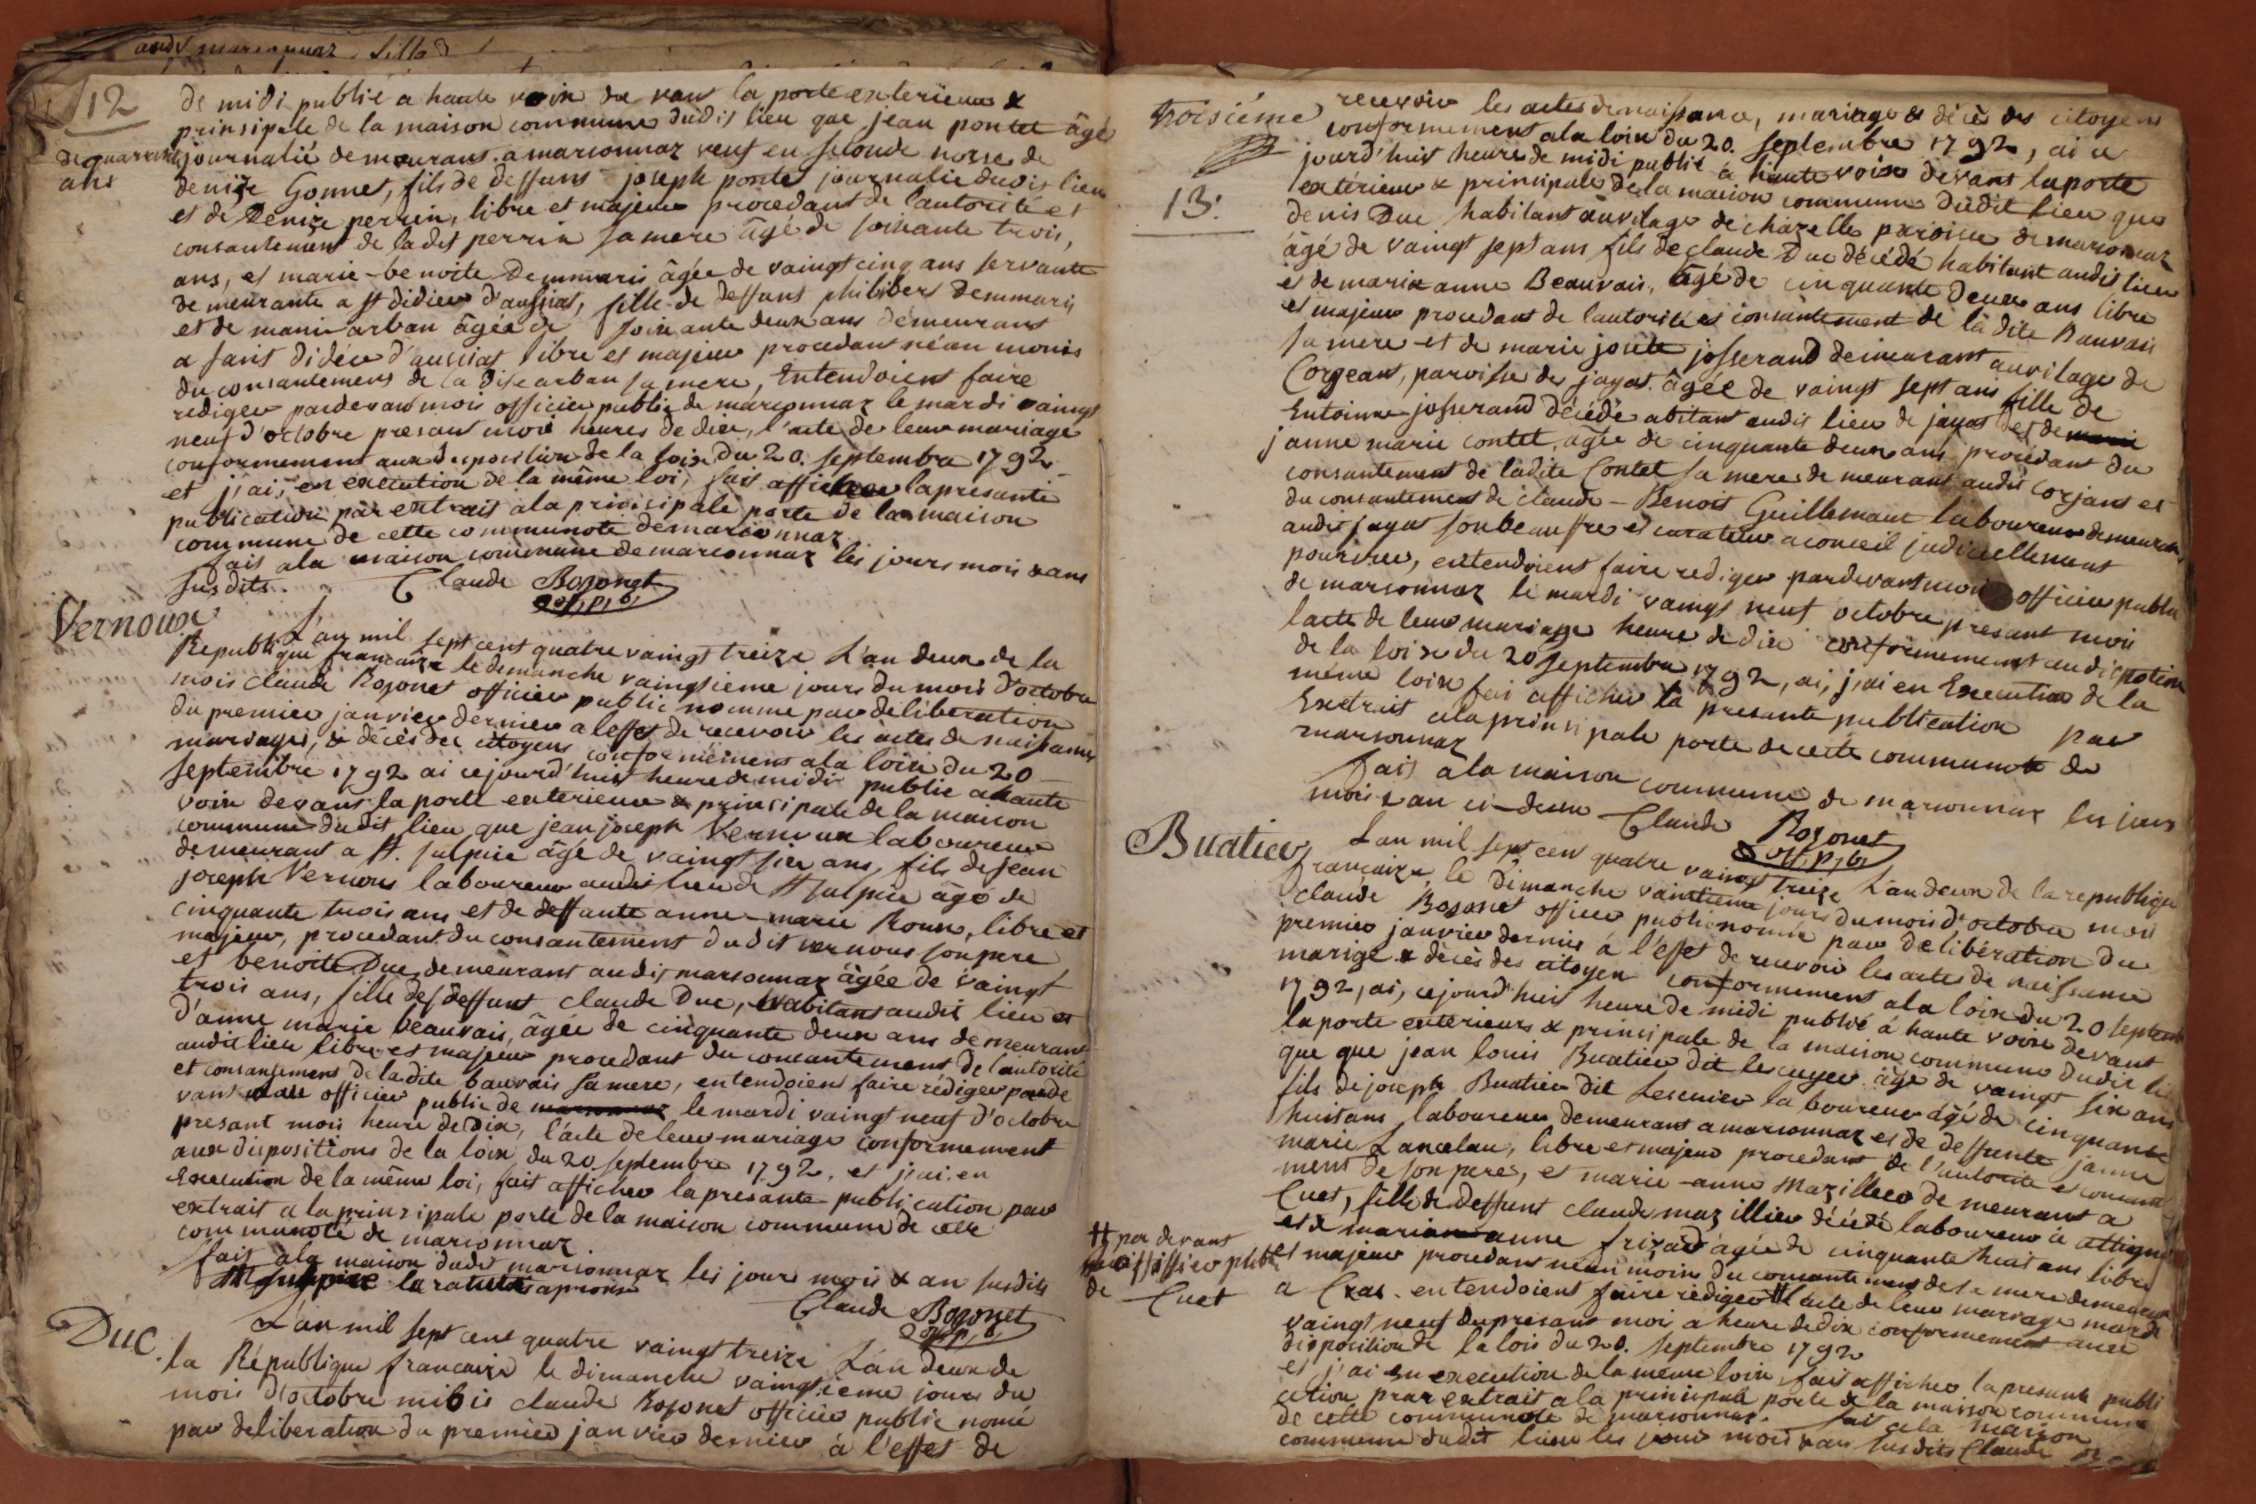 12
de midi publié a haute voix de vant la porte exterieure &
prinsipale de la maison commune dudis lieu que jean pontet âgé
de quarrante
ans
journalié demeurans a marsonnaz veuf en seconde nosse de
denize Gonnet, fils de deffuns joseph pontet journalié dudis lieu
et de Denize perrin, libre et majeur procedant de l'autorité et
consantement de ladit perrin sa mere âgé de soixante trois,
ans, et marie-benoite Demmaris âgée de vaingt cinq ans servante
de meurante a st didier d'aussias, fille de deffuns philibers Demmaris
et de marie arban âgée de soixante deux ans demeurans
a saint didier d'aussias libre et majeur procedant néan moins
du consantemens de la dite arban sa mere, Entendoient faire
rediger pardevans mois officier public de marsonnaz le mardi vaingt
neuf d'octobre presant mois heures de diex, l'acte de leur mariage
conformement aux disposition de la loix du 20. septembre 1792
et j'ai, en execution de la même loi, fait afficher la presante
publication par extrait a la prinsipale porte de la maison
commune de cette communote de marsonnaz
fais a la maison commune de marsonnaz les jours mois & ans
susdits. Claude Bozonet
off, p, b,
Vernoux
L'an mil sept cent quatre vaingt treize L'an deux de la
Republique francaize le demanche vaingtieme jours du mois d'octobre
mois claude Bozonet officier public nommé par deliberation
du premier janvier dernier a leffet de recevoir les actes de naissance
mariages, & décès des citoyens conformémens a la loix du 20
septembre 1792 ai cejourd'huis heure de midi publié a haute
voix devans la porte exterieure & prinsipale de la maison
commune du dit lieu que jean joseph Vernoux laboureur
demeurant a st. sulpice âgé de vaingt six ans, fils de jean
joseph Vernous laboureur audis lieu de st sulpice âgé de
cinquante trois ans et de deffante anne-marie Roux, libre et
majeur, procedant du consantement dudit vernous son pere
et benoite Duc demeurant audis marsonnaz âgée de vaingt
trois ans, fille de deffunt claude Duc, habitans audit lieu et
d'anne marie beauvais, âgée de cinquante deux ans demeurant
audis lieu libre et majeur procedant du consantement de l'autorité
et consantement de ladite bauvais sa mere, entendoiens faire rédiger parde
vant officier public de marsonnaz le mardi vaingt neuf d'octobre
presant mois heure de dix, l'acte de leur mariage conformement
aux dispositions de la loix du 20 septembre 1792, et j'ai en
Execution de la même loi, fait afficher la presante publication par
extrait a la prinsipale porte de la maison commune de cette
communoté de marsonnaz.
fais a la maison dudit marsonnaz les jours mois & an susdits
la rature aprouvé
Claude Bozonet
off, p, b,
Duc.
L'an mil sept cent quatre vaingt treize L'an deux de
la République francaize le dimanche vaingtieme jours du
mois d'octobre mois claude Bozonet officier public nomé
par deliberation du premier janvier dernier à l'effet de
troisiéme
recevoir les actes de naissance, mariage & décès des citoyens
conformement a la loix du 20. septembre 1792, ai ce
jourd'huis heure de midi publié a haute voix devant la porte
13.
extérieur & prinsipale de la maison commune dudit lieu que
denis Duc habitant au vilage de chazelle paroisse de marsonnaz
âgé de vaingt sept ans fils de claude Duc décédé habitant audis lieu
et de marie anne Beauvais, âgé de cinquante deux ans libre
et majeur procedant de l'autorité et consantement de la dite Bauvais
sa mere et de marie josète josserand demeurant au vilage de
Corgeans, paroisse de jayat âgée de vaingt sept ans fille de
Entoinne josserand décédé abitant audis lieu de jayat et de marie
janne marie contet, âgée de cinquante deux ans procedant du
consantement de ladite Contet sa mere de meurant audit corjans et
du consantement de claude-Benois Guillemaut laboureur demeurant
audis jayat son beau frere et curateur a conceil judiciellement
pourvue, entendoient faire rediger pardevant mois officier public
de marsonnaz le mardi vaingt neuf octobre presant mois
lacte de leur mariage heure de dix conformement au dispotion
de la loix du 20 septembre 1792, ai, j'ai en Execution de la
même loix fai afficher la presante publication par
Extrait a la prinsipale porte de cette communote de
marsonnaz
fais à la maison commune de marsonnaz les jours
mois & an ci-deux Claude Bozonet
off, p, b,
Buatier
L'an mil sept cen quatre vaingt treize L'an deux de la republique
francaize, le dimanche vaintieme jours du mois d'octobre mois
claude Bozonet officier public nomée par delibération du
premier janvier dernier à l'effet de recevoir les actes de naissance
marige & décès des citoyen conformement a la loix du 20 septembre
1792, ai, cejourd'huis heure de midi publié á haute voix devant
la porte exterieure & prinsipale de la maison commune dudis lieu
que que jean louis Buatier dit lescuyer âgé de vaingt six ans
fils de joseph Buatier dit Lescuier laboureur âgé de cinquante
huit ans laboureur demeurant a marsonnaz et de deffunte janne
marie Lancelau, libre et majeur procedant de l'autorité et consante
ment de son pere, et marie-anne Mazillier de meurant a
Cuet, fille de deffunt claude mazillier décédé laboureur a attignat
et de marie anne frizad âgée de cinquante huit ans libre
et majeur procedant néan moins du consantement de sa mere demeurant
a Cras. entendoient faire rediger # l'acte de leur marriage mardi
# par devant
officier public
de Cuet
vaingt neuf du presant mois a heure de dix conformement aux
disposition de la lois du 20. septembre 1792
et j'ai en execution de la même loix fait afficher la presante publi
cation par extrait a la prinsipale porte de la maison commune
de cette communote de marsonnaz. fait a la maison
commune dudit lieu les jour mois & an susdits Claude